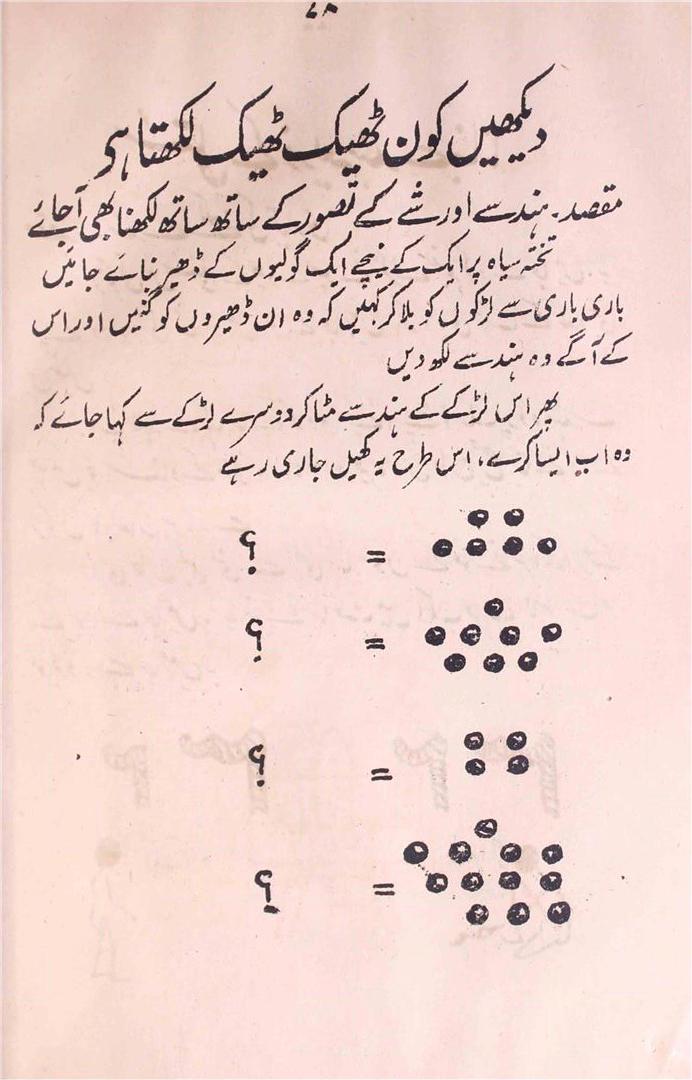 ۷۸
دیکھیں کون ٹھیک ٹھیک لکھتا ہے
مقصد۔ ہندسے اور شے کے تصور کے ساتھ ساتھ لکھنا بھی آجائے
تختہ سیاہ پر ایک کے نیچے ایک گولیوں کے ڈھیر بنائے جائیں
باری باری سے لڑکوں کو بلا کر کہیں کہ وہ ان ڈھیروں کو گنیں اور اس
کے آگے وہ ہندسے لکھ دیں
پھر اس لڑکے کے ہندسے مٹا کر دوسرے لڑکے سے کہا جائے کہ
وہ اب ایسا کرے، اس طرح یہ کھیل جاری رہے
= ؟
= ؟
= ؟
= ؟